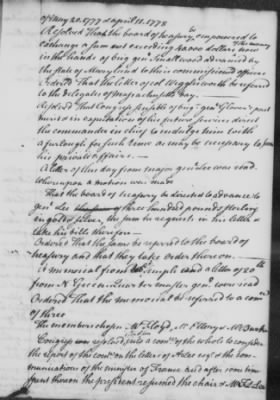 of May 20. 1777 & april 11. 1778
Resolved That the board of treasury be empowered to
exchange a sum not exceeding 4000 dollars now of the money
in the hands of brig gen Smallwood advanced by
the state of Maryland to their commissioned officers
Ordered That the letter of col Wigglesworth be referred
to the delegates of Massachusetts bay.
Resolved That Congress
and in expectation of his future services direct
the commander in chief to indulge him with
a furlough for such time as may be necessary to
his private affairs. —
A letter of this day from major gen Lee was read
whereupon a motion was made
That the board of treasury be directed to advance to
gen Lee three hundred pounds sterling
in gold & silver, the sum he requests in his letter &
take his bills therefor —
Ordered That the same be referred to the board of
treasury and that they take order thereon. —
A memorial from Temple and a letter of 20th
from N Greene quarter master gen.l were read
Ordered That the memorial be referred to a com.ee
of three
The members chosen Mr Floyd, Mr Ellery & Mr
Congress was resolved into a com.ee of the whole to consider
the report of the com.ee on the letters of A Lee esq.r & the com-
munication of the minister of France and after some time
spent thereon the president resumed the chair &